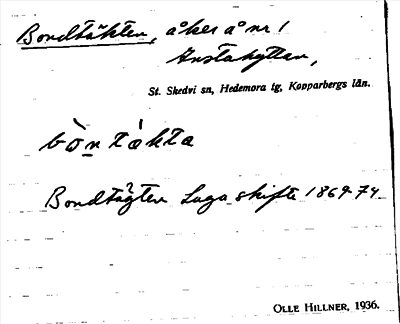 Bondtäkten, åker å nr 1
Anstahyttan,
St. Skedvi sn, Hedemora tg, Kopparbergs län.
bòn tákta
Bondtägten Laga skifte 1869-74
OLLE HILLNER, 1936.